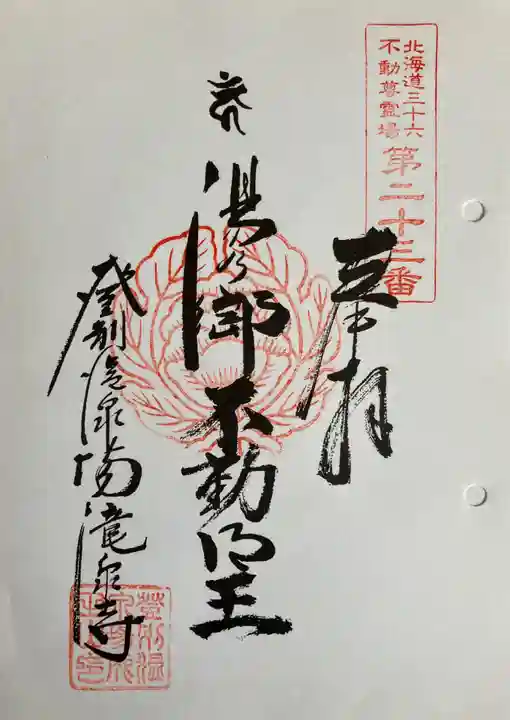 北海道三十六
不動尊霊場
第二十三番
奉拝
湯乃郷不動明王
登別温泉 滝泉寺